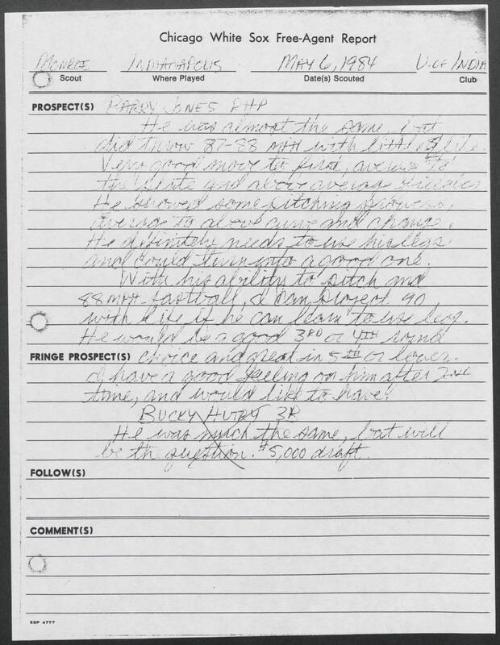 Chicago White Sox Free-Agent Report
Monroe Indianapolis May 6, 1984 U. of India
Scout Where Played Date(s) Scouted Club
PROSPECT(S) Barry Jones RHP
He was almost the same, but
did throw 87-88 MPH with little life.
Very good move to first, average
the plate and above average
He showed some pitching
average to above curve and change.
He definitely needs to use his legs
and could turn into a good one.
With his ability to pitch and
88 MPH fastball, I can project 90,
with life if he can learn to use legs.
He would be a good 3RD or 4TH round
FRINGE PROSPECT(S) choice and great in 5th or lower.
I have a good feeling on him after 2nd
time, and would like to have.
Bucky 3B
He was much the same, but will
be the question. $5,000 draft.
FOLLOW(S)
COMMENT(S)